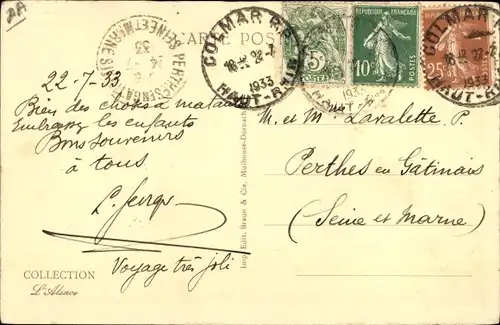 AA
CARTE POST
COLMAR R.P.
18 H 22-7
1933
HAUT-RHIN
5
POSTES
10
POSTES
25
COLMAR
18 H 22-7
1933
HAUT-RHIN
PERTHES EN GAT
SEINE ET MARNE
22-7-33
Bien des choses à
Embrassez les enfants
Bons Souvenirs
à tous
Voyage très joli
M. et M. Lavalette P.
Perthes en Gâtinais
(Seine et Marne)
Imp. Edit. Braun & Cie, Mulhouse-Dornach
COLLECTION
L'Alsace